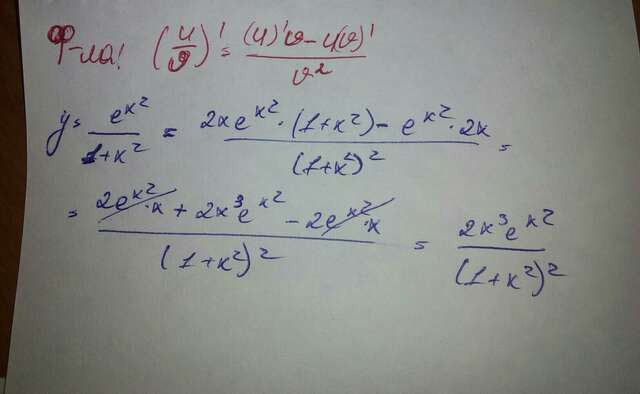 Ф-ла! (u/v)' = ((u)'v - u(v)')/v²
y = e^x²/(1+x²) = (2xe^x² · (1+x²) - e^x² · 2x)/(1+x²)² =
= (2e^x² · x + 2x³e^x² - 2e^x² · x)/(1+x²)² = 2x³e^x²/(1+x²)²